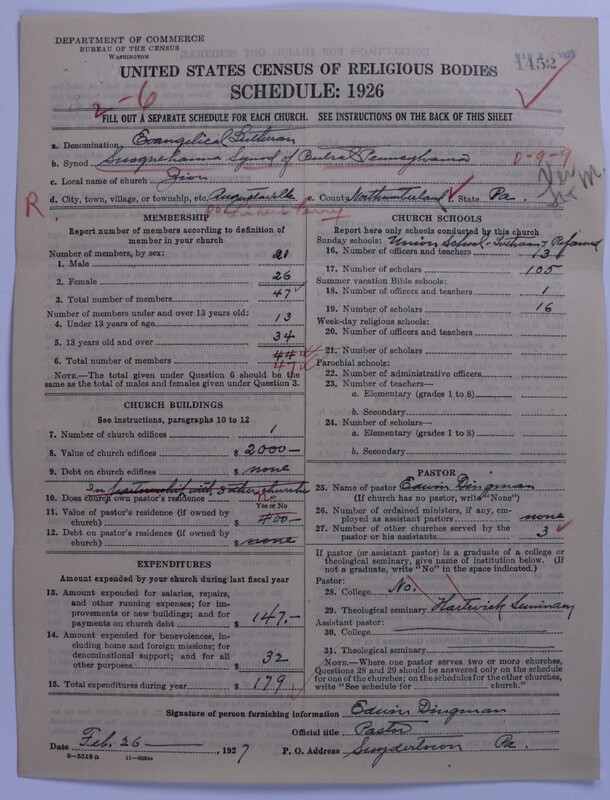 DEPARTMENT OF COMMERCE
BUREAU OF THE CENSUS
WASHINGTON
1452
UNITED STATES CENSUS OF RELIGIOUS BODIES
SCHEDULE: 1926
2-6
FILL OUT A SEPARATE SCHEDULE FOR EACH CHURCH. SEE INSTRUCTIONS ON THE BACK OF THIS SHEET
a. Denomination Evangelical Lutheran
b. Synod Susquehanna Synod of Central Pennsylvania 0-9-9
c. Local name of church Zion
R d. City, town, village, or township, etc. Augustaville e. County Northumberland f. State Pa.
MEMBERSHIP
Report number of members according to definition of member in your church
Number of members, by sex:
1. Male 21
2. Female 26
3. Total number of members 47
Number of members under and over 13 years old:
4. Under 13 years of age 13
5. 13 years old and over 34
6. Total number of members 44
47
NOTE.—The total given under Question 6 should be the
same as the total of males and females given under Question 3.
CHURCH BUILDINGS
See instructions, paragraphs 10 to 12
7. Number of church edifices 1
8. Value of church edifices $ 2000—
9. Debt on church edifices $ none
In partnership with 3 other churches
10. Does church own pastor's residence no
Yes or No
11. Value of pastor's residence (if owned by
church) $ 400—
12. Debt on pastor's residence (if owned by
church) $ none
EXPENDITURES
Amount expended by your church during last fiscal year
13. Amount expended for salaries, repairs,
and other running expenses; for im-
provements or new buildings; and for
payments on church debt $ 147.—
14. Amount expended for benevolences, in-
cluding home and foreign missions; for
denominational support; and for all
other purposes $ 32
15. Total expenditures during year $ 179
CHURCH SCHOOLS
Report here only schools conducted by this church
Sunday schools: Union School - Lutheran & Reformed
16. Number of officers and teachers 13
17. Number of scholars 105
Summer vacation Bible schools:
18. Number of officers and teachers 1
19. Number of scholars 16
Week-day religious schools:
20. Number of officers and teachers
21. Number of scholars
Parochial schools:
22. Number of administrative officers
23. Number of teachers—
a. Elementary (grades 1 to 8)
b. Secondary
24. Number of scholars—
a. Elementary (grades 1 to 8)
b. Secondary
PASTOR
25. Name of pastor Edwin Dingman
(If church has no pastor, write "None")
26. Number of ordained ministers, if any, em-
ployed as assistant pastors none
27. Number of other churches served by the
pastor or his assistants 3
If pastor (or assistant pastor) is a graduate of a college or
theological seminary, give name of institution below. (If
not a graduate, write "No" in the space indicated.)
Pastor:
28. College No.
29. Theological seminary Hartwick Seminary
Assistant pastor:
30. College
31. Theological seminary
NOTE.—Where one pastor serves two or more churches,
Questions 28 and 29 should be answered only on the schedule
for one of the churches; on the schedules for the other churches,
write "See schedule for ........ church."
Signature of person furnishing information Edwin Dingman
Official title Pastor
Date Feb. 26 1927 P. O. Address Snydertown Pa.
8-5518 a